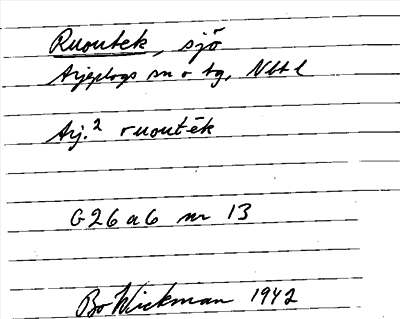 Ruoutek, sjö
Arjeplogs sn o tg, Nbt l
Arj.² ruoutēk
G26 a6 nr 13
Bo Wickman 1942